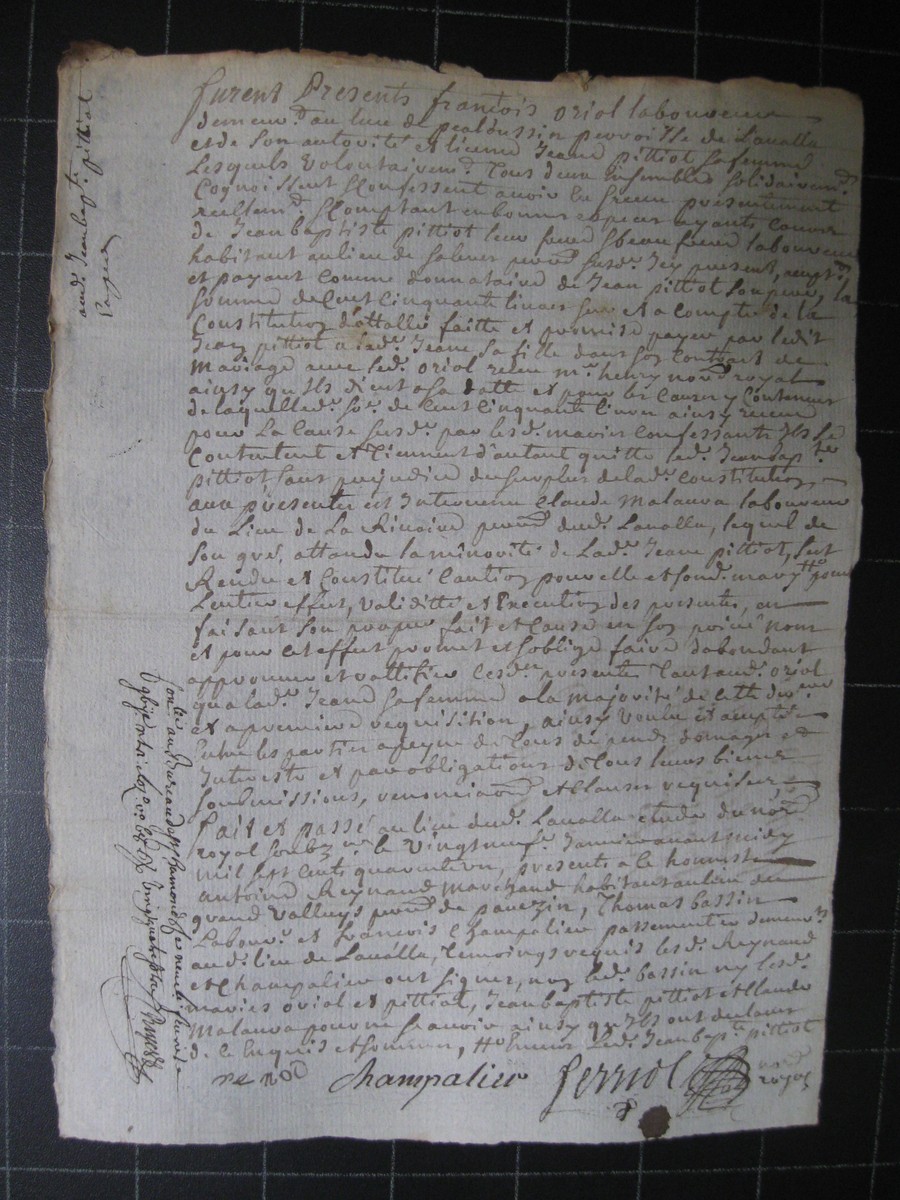 furent Presents françois oriol laboureur
demeur.t au lieu de pealdussin parroisse de Lavalla
et de son autorité et licence Jeane pittiot sa femme
Lesquels volontairem.t tous deux ensembles solidairem.t
Cognoissent & Confessent avoir eu & receu presentement
reellem.t & Comptant en bonnes especes ayants cours
de Jean baptiste pittiot leur frere & beau frere laboureur
habitant au lieu de present, accpt.t
et payant comme donnataire de Jean pittiot son pere, la
somme de Cent Cinquante livres sur et a compte de la
Constitution faitte et promise payer par ledit
Jean pittiot a lad. Jeane sa fille dans son contract de
mariage avec led. oriol receu m.e henry no.re royal
ainsy qu'ils dient a sa datte et pour les causes y contenues
de laquelle d. so.e de Cent Cinquante livres ainsy receue
pour La Cause susd. par lesd. maries Confessants Ils se
Contentent et tiennent d'autant quitte led. Jean bap.te
pittiot sans prejudice du surplus de lad. Constitution
aux presentes est Intervenu Claude Malaura laboureur
du Lieu de La Rivoire dud. Lavalla, lequel de
son gré, attandu la minorité de Lad. Jeane pittiot, s'est
Rendu et Constitué Caution pour elle et sond. mary pour
Lentier effet, validitté et Execution des presentes, en
faisant son propre fait et cause en son privé nom
et pour cet effet promet et soblige faire d'abondant
approuver et rattifier lesd. presentes tant aud. oriol
qua lad. Jeane sa femme a la majorité de
et a premiere requisition, ainsy voulu et accepté
Entre les parties a peyne de tous despends domages et
Interests et par obligations de tous leurs biens
soubmissions, renonciaons et clauses requises,
fait et passé au lieu dud. Lavalla etude du no.re
royal soubz.né le vingt neuf Janvier avant midy
mil sept cents quarente un, presents a le honneste
antoine Reynaud Marchand habitant au lieu de
grand valluys de pavezin, Thomas bassin
Labour. et francois Champalier passementier demeur.ts
aud. lieu de Lavalla, temoings requis lesd. Reynaud
et Champalier ont signez, non led. bassin ny lesd.
maries oriol et pittiot, Jean baptiste pittiot et Claude
Malaura pour ne scavoir ainsy qu'Ils ont declaré
de ce enquis et sommez, led. Jean bap.te pittiot
Champalier
ferriol
royal
aud. Jean bap.te pittiot